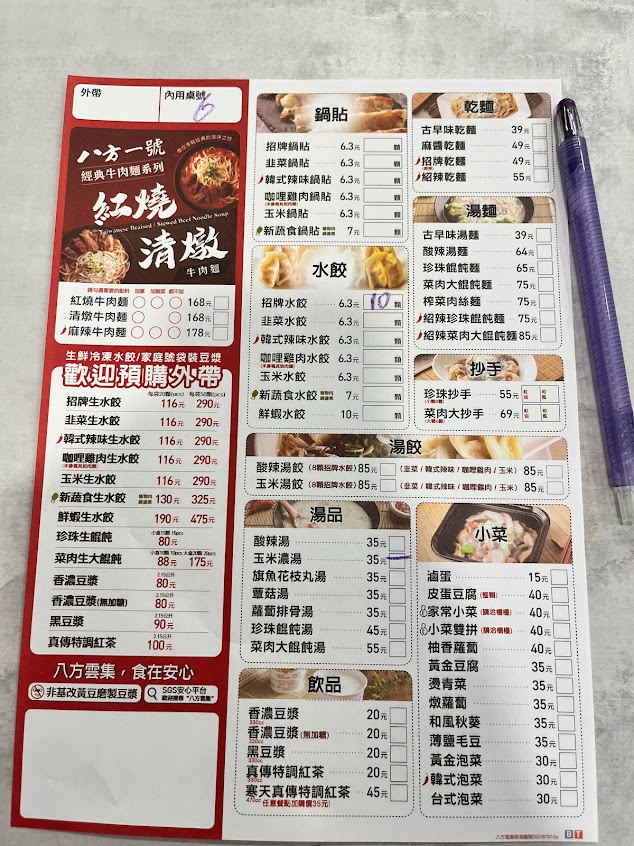 外帶
內用桌號
6
八方一號
經典牛肉麵系列
紅燒
Taiwanese Braised / Stewed Beef Noodle Soup
清燉
牛肉麵
請勾選需要的配料 加蔥 加酸菜 都不加
紅燒牛肉麵 168元
清燉牛肉麵 168元
麻辣牛肉麵 178元
生鮮冷凍水餃/家庭號袋裝豆漿
歡迎預購外帶
每袋20顆(pcs) 每袋50顆(pcs)
招牌生水餃 116元 290元
韭菜生水餃 116元 290元
韓式辣味生水餃 116元 290元
咖哩雞肉生水餃 116元 290元
玉米生水餃 116元 290元
新蔬食生水餃 130元 325元
鮮蝦生水餃 190元 475元
小盒15顆 15pcs
珍珠生餛飩 80元
小盒10顆 10pcs 大盒20顆 20pcs
菜肉生大餛飩 88元 175元
2.15公升
香濃豆漿 80元
2.15公升
香濃豆漿(無加糖) 80元
2.15公升
黑豆漿 90元
2.15公升
真傳特調紅茶 100元
八方雲集，食在安心
非基改黃豆磨製豆漿
SGS安心平台
歡迎搜尋"八方雲集"
鍋貼
招牌鍋貼 6.3元 顆
韭菜鍋貼 6.3元 顆
韓式辣味鍋貼 6.3元 顆
咖哩雞肉鍋貼 6.3元 顆
玉米鍋貼 6.3元 顆
新蔬食鍋貼 7元 顆
水餃
招牌水餃 6.3元 10 顆
韭菜水餃 6.3元 顆
韓式辣味水餃 6.3元 顆
咖哩雞肉水餃 6.3元 顆
玉米水餃 6.3元 顆
新蔬食水餃 7元 顆
鮮蝦水餃 10元 顆
乾麵
古早味乾麵 39元
麻醬乾麵 49元
招牌乾麵 49元
紹辣乾麵 55元
湯麵
古早味湯麵 39元
酸辣湯麵 64元
珍珠餛飩麵 65元
菜肉大餛飩麵 75元
榨菜肉絲麵 75元
紹辣珍珠餛飩麵 75元
紹辣菜肉大餛飩麵 85元
抄手
珍珠抄手 55元
菜肉大抄手 69元
湯餃
酸辣湯餃 (8顆招牌水餃) 85元 (韭菜/韓式辣味/咖哩雞肉/玉米) 85元
玉米湯餃 (8顆招牌水餃) 85元 (韭菜/韓式辣味/咖哩雞肉/玉米) 85元
湯品
酸辣湯 35元
玉米濃湯 35元
旗魚花枝丸湯 35元
蕈菇湯 35元
蘿蔔排骨湯 35元
珍珠餛飩湯 45元
菜肉大餛飩湯 55元
飲品
香濃豆漿 20元
330cc
香濃豆漿(無加糖) 20元
330cc
黑豆漿 20元
330cc
真傳特調紅茶 20元
330cc
寒天真傳特調紅茶 45元
470cc 任意餐點加購價35元
小菜
滷蛋 15元
皮蛋豆腐(整顆) 40元
家常小菜(請洽櫃檯) 40元
小菜雙拼(請洽櫃檯) 40元
柚香蘿蔔 40元
黃金豆腐 35元
燙青菜 35元
燉蘿蔔 35元
和風秋葵 35元
薄鹽毛豆 35元
黃金泡菜 30元
韓式泡菜 30元
台式泡菜 30元
B T